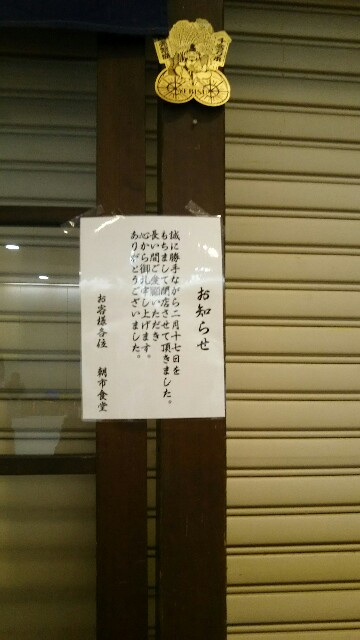 お知らせ
誠に勝手ながら二月十七日を
もちまして閉店させて頂きました。
長い間ご愛顧いただき
心から御礼申し上げます。
ありがとうございました。
お客様各位　朝市食堂